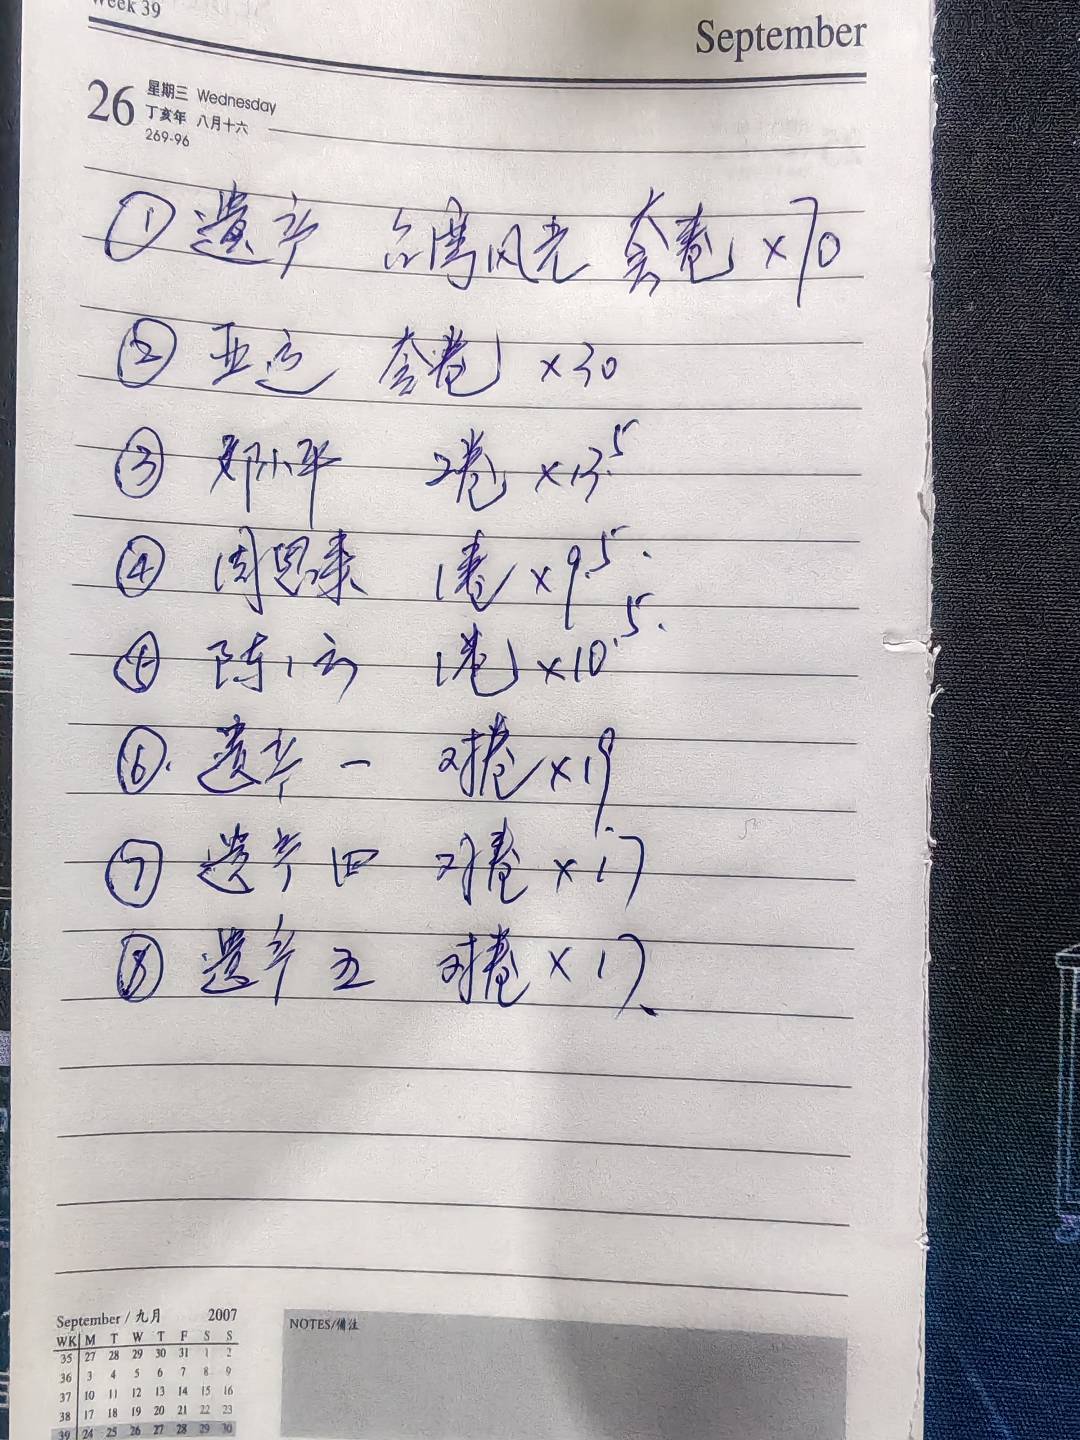 Week 39
September
26 星期三 Wednesday
丁亥年 八月十六
269-96
① 遗产 台湾风光 套卷 ×70
② 亚运 套卷 ×30
③ 邓小平 2卷 ×13.5
④ 周恩来 1卷 ×9.5.
⑤ 陈云 1卷 ×10.5.
⑥. 遗产一 对卷 ×19.
⑦ 遗产四 对卷 ×17
⑧ 遗产五 对卷 ×17、
September / 九月 2007
WK M T W T F S S
35 27 28 29 30 31 1 2
36 3 4 5 6 7 8 9
37 10 11 12 13 14 15 16
38 17 18 19 20 21 22 23
39 24 25 26 27 28 29 30
NOTES/备注